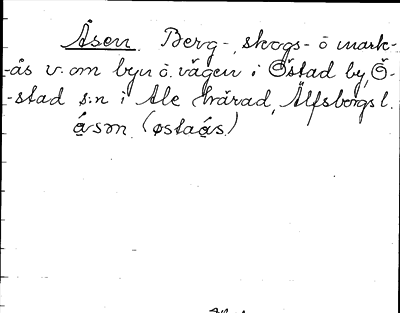 Åsen. Berg-, skogs- o mark-
-ås v. om byn o. vägen i Östad by, Ö-
-stad s:n i Ale härad, Älfsborgs l.
åsən (østaås)